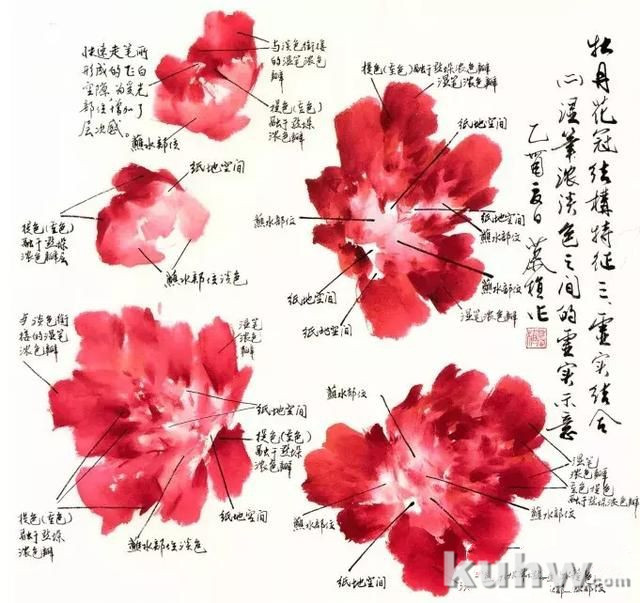 牡丹花冠结構特征三、虚实结合
(二)湿笔浓淡色之间的虚实示意
乙酉夏日
快速走笔所
形成的飞白
空隙为受光
部位增加了
层次感。
与淡色衔接
的湿笔浓色
瓣
提色(重色)
融于敷染
浓色瓣
蘸水部位
纸地空间
提色(重色)
浓色瓣层
蘸水部位淡色
提色(重色)融于
浓色瓣
湿笔浓色瓣
纸地空间
蘸水部位
纸地空间
蘸水部位
蘸水部位
纸地空间
纸地空间
湿笔浓色瓣
与淡色衔
接的湿笔
浓色瓣
湿笔
浓色
瓣
纸地空间
提色(重色)
浓色瓣
纸地空间
提色(重色)
浓色瓣
蘸水部位淡色
蘸水部位
湿笔
浓色瓣
重色提色
蘸水部位
蘸水部位
纸地空间
kuhw.com